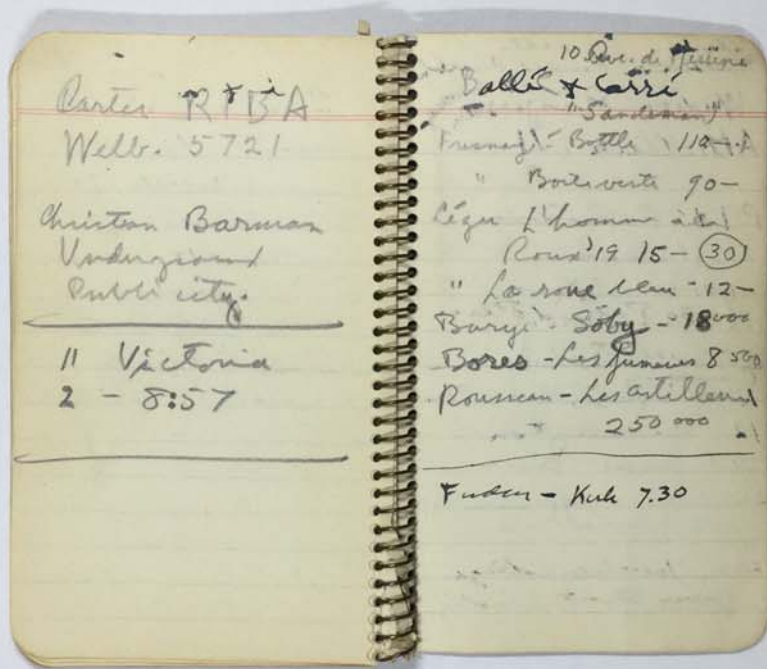 Carter RIBA
Welb. 5721
Christian Barman
Underground
Publicity.
11 Victoria
2 - 8:57
10 Ave. de Messine
Ballé & Carré
"Sandeman"
Bottle 110-
" Boite verte 90-
Léger L'homme à la
Roue '19 15- 30
" La roue bleu - 12-
- Soby - 18000
Bores - Les fumeurs 8500
Rousseau - Les artilleurs
250 000
- Kirk 7.30